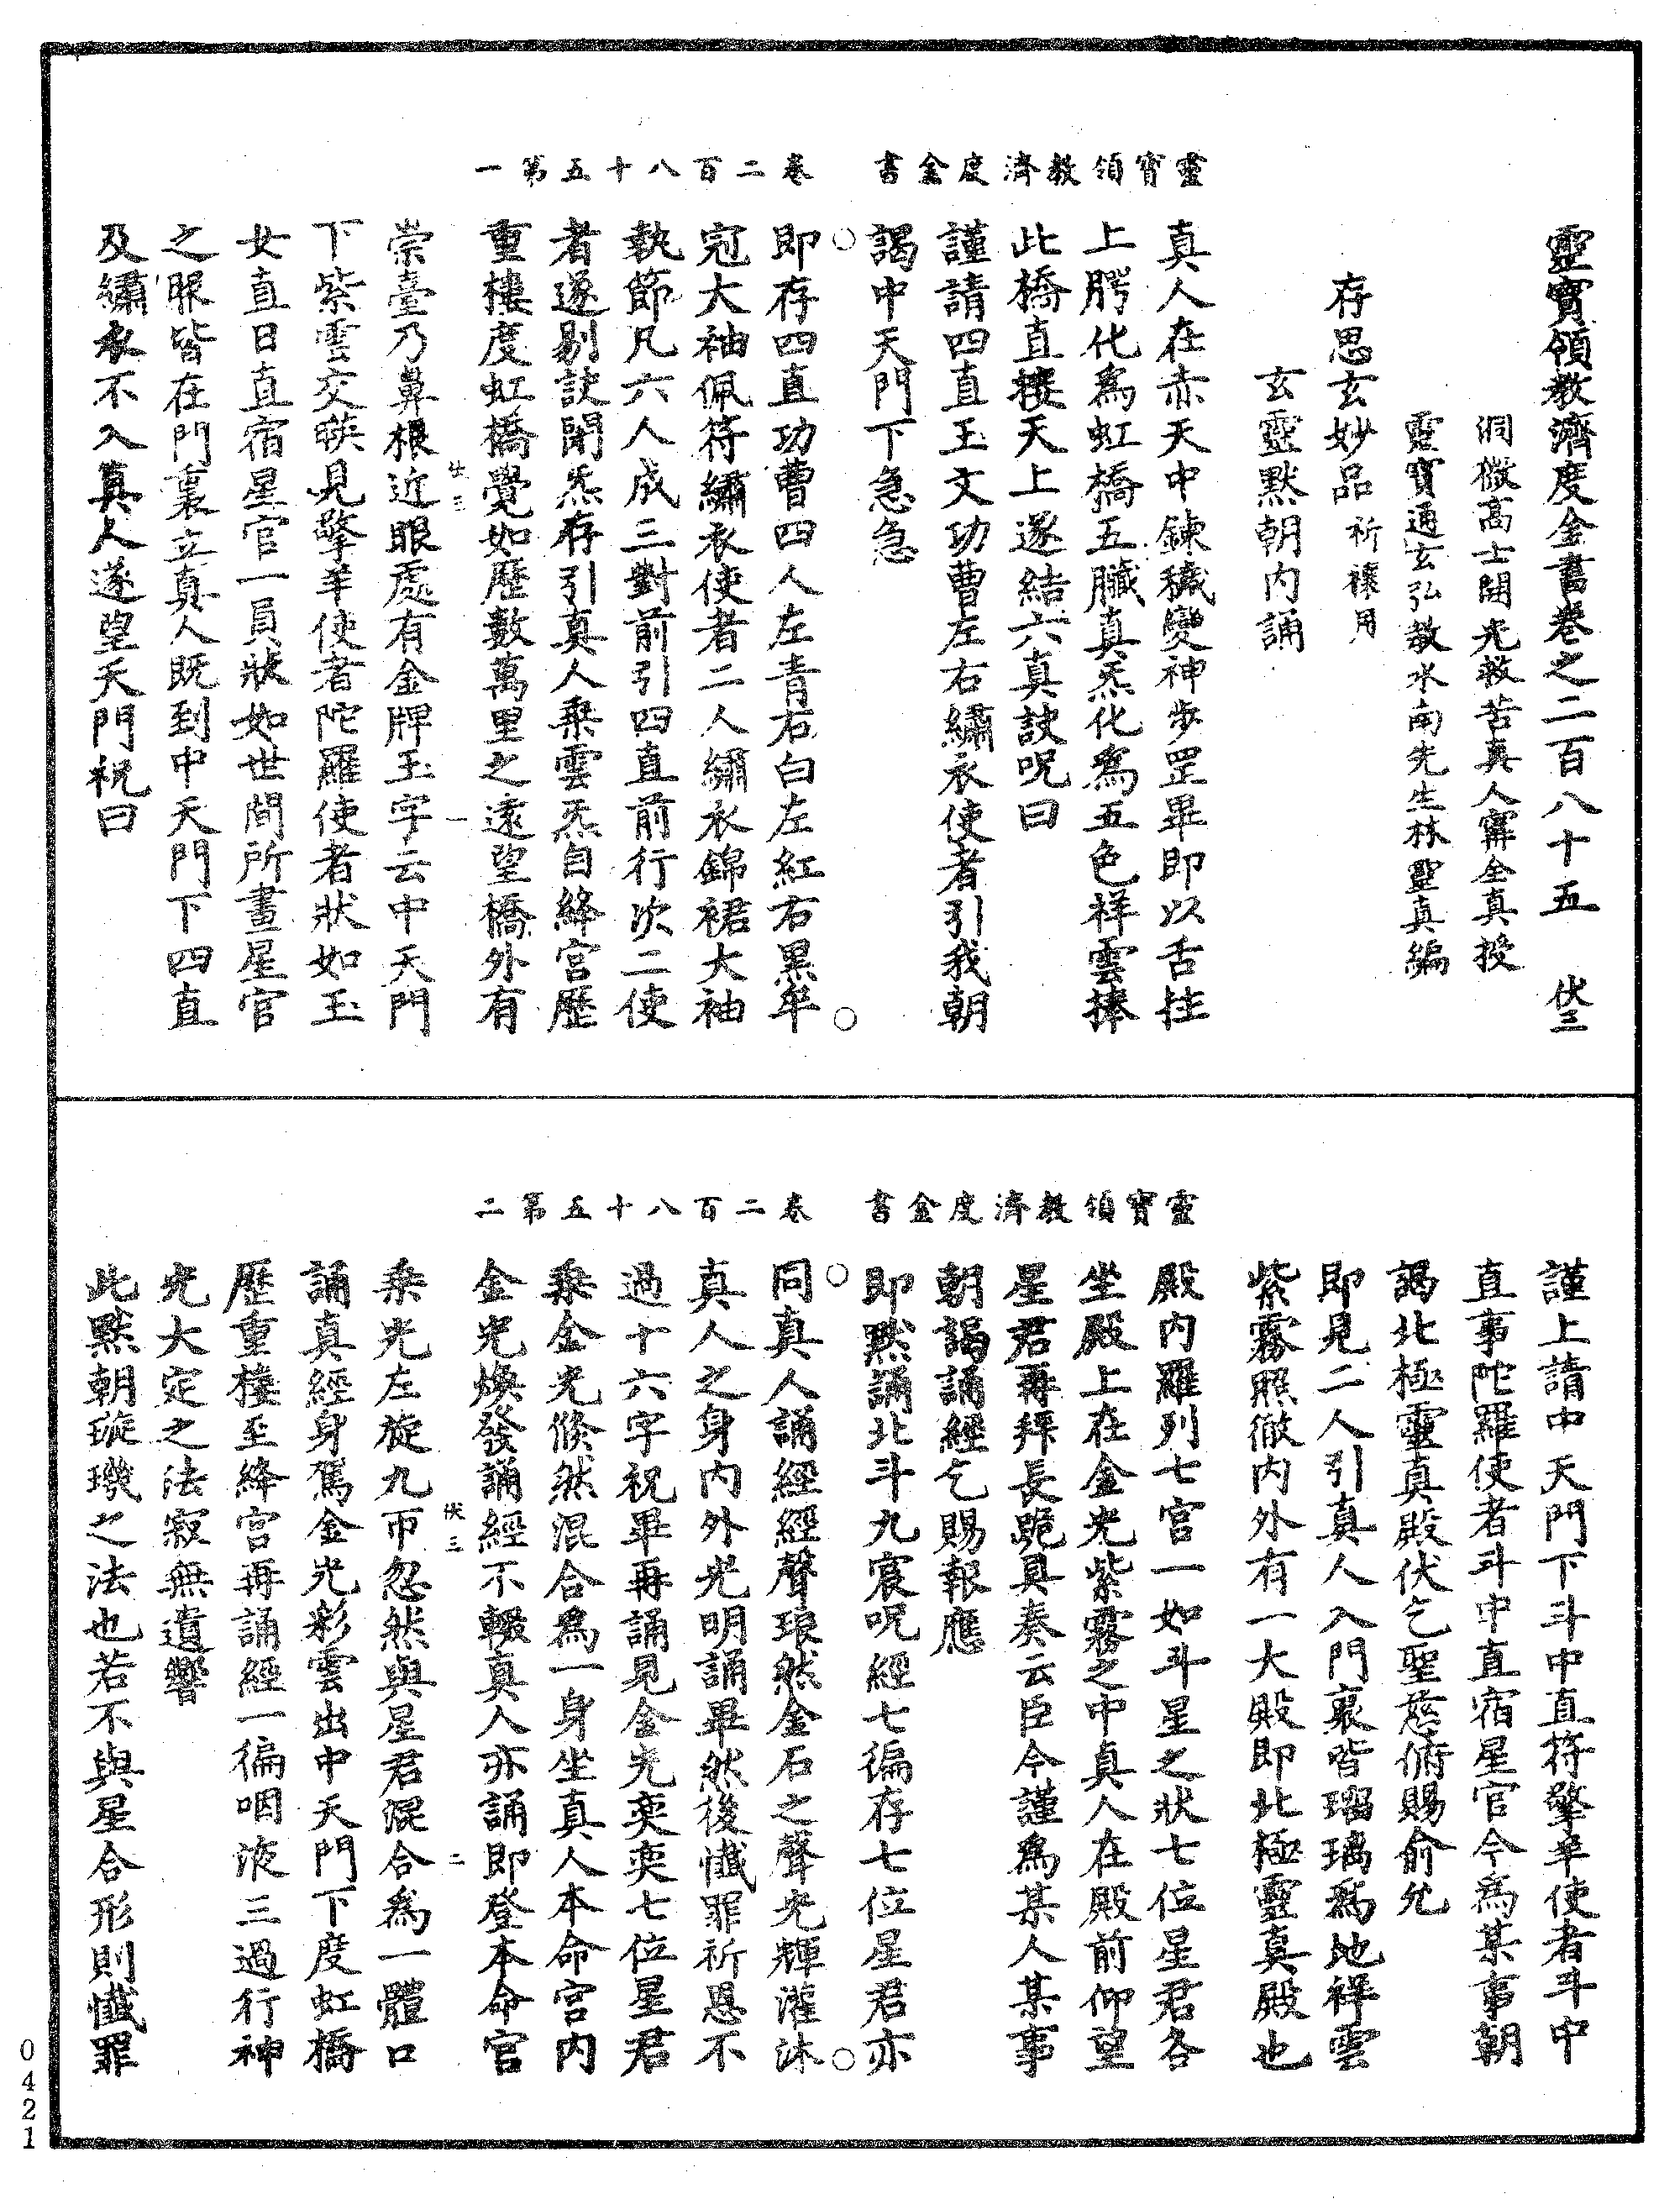 靈寶領教濟度金書卷之二百八十五　伏三
洞微高士開光救苦真人甯全真授
靈寶通玄弘教水南先生林靈真編
存思玄妙品祈禳用
玄靈默朝內誦
真人在赤天中鍊穢變神步罡畢即以舌拄
上腭化爲虹橋五臟真炁化爲五色祥雲捧
此橋直接天上遂結六真訣呪曰
謹請四直玉文功曹左右繡衣使者引我朝
謁中天門下急急
靈寶領教濟度金書　卷二百八十五第一
即存四直功曹四人左青右白左紅右黑牟
冠大袖佩符繡衣使者二人繡衣錦裙大袖
執節凡六人成三對前引四直前行次二使
者遂剔訣閉炁存引真人乘雲炁自絳宮歷
重樓度虹橋覺如歷數萬里之遠望橋外有
崇臺乃鼻根近眼處有金牌玉字云中天門
下紫雲交暎見擎羊使者陀羅使者狀如玉
女直日直宿星官一員狀如世間所畫星官
之服皆在門裏立真人既到中天門下四直
及繡衣不入真人遂望天門祝曰
謹上請中天門下斗中直符擎羊使者斗中
直事陀羅使者斗中直宿星官今爲某事朝
謁北極靈真殿伏乞聖慈俯賜俞允
即見二人引真人入門裏皆瑠璃爲地祥雲
紫霧照徹內外有一大殿即北極靈真殿也
殿內羅列七宮一如斗星之狀七位星君各
坐殿上在金光紫霧之中真人在殿前仰望
星君再拜長跪具奏云臣今謹爲某人某事
朝謁誦經乞賜報應
即默誦北斗九宸呪經七徧存七位星君亦
靈寶領教濟度金書　卷二百八十五第二
同真人誦經經聲琅然金石之聲光輝灌沐
真人之身內外光明誦畢然後懺罪祈恩不
過十六字祝畢再誦見金光奕奕七位星君
乘金光倐然混合爲一身坐真人本命宮內
金光煥發誦經不輟真人亦誦即登本命宮
乘光左旋九帀忽然與星君混合爲一體口
誦真經身駕金光彩雲出中天門下度虹橋
歷重樓至絳宮再誦經一徧咽液三過行神
光大定之法寂無遺響
此默朝璇璣之法也若不與星合形則懺罪
0421